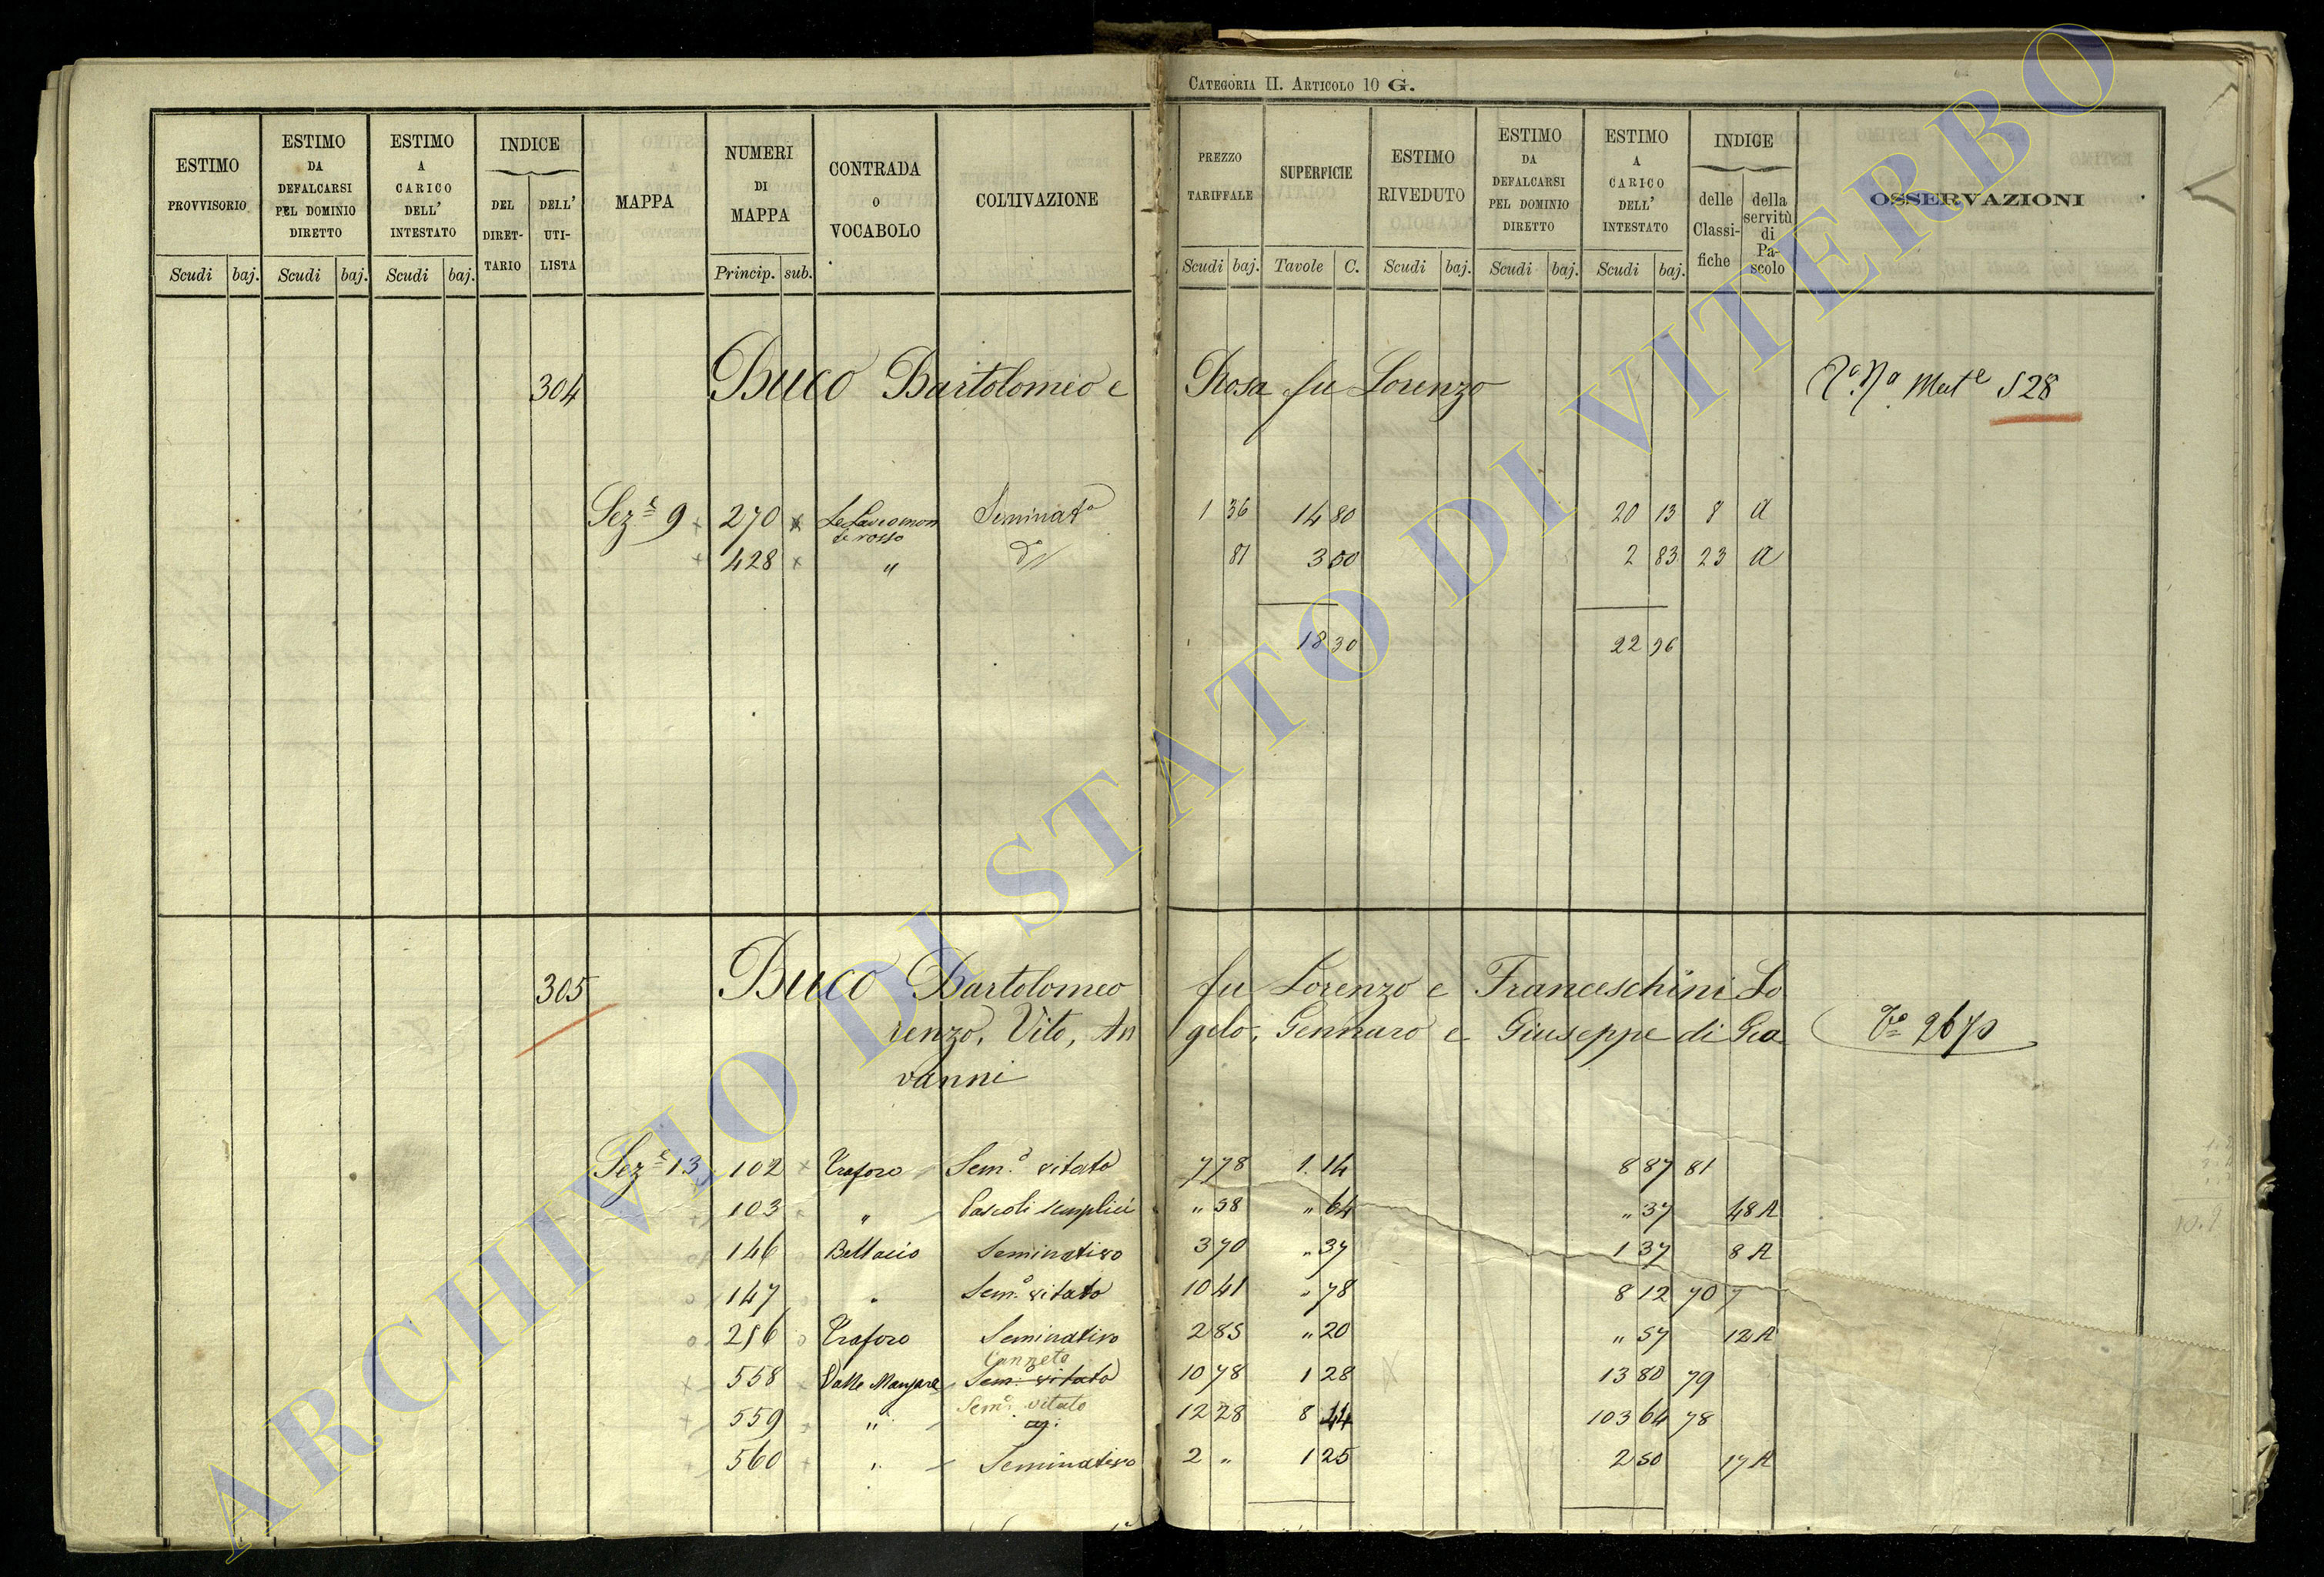 CATEGORIA II. ARTICOLO 10 G.
ESTIMO PROVVISORIO Scudi baj.
ESTIMO DA DEFALCARSI PEL DOMINIO DIRETTO Scudi baj.
ESTIMO A CARICO DELL' INTESTATO Scudi baj.
INDICE DEL DIRET- TARIO DELL' UTI- LISTA
MAPPA
NUMERI DI MAPPA Princip. sub.
CONTRADA O VOCABOLO
COLTIVAZIONE
PREZZO TARIFFALE Scudi baj.
SUPERFICIE Tavole C.
ESTIMO RIVEDUTO Scudi baj.
ESTIMO DA DEFALCARSI PEL DOMINIO DIRETTO Scudi baj.
ESTIMO A CARICO DELL' INTESTATO Scudi baj.
INDICE delle Classi- fiche della servitù di Pa- scolo
OSSERVAZIONI
304 Buco Bartolomeo e Rosa fu Lorenzo 528
Sez.e 9 270 Seminato 1 36 14 80 20 13 8 A
428 " do 81 3 50 2 83 23 A
18 30 22 96
305 Buco Bartolomeo fu Lorenzo e Franceschini Lo
renzo, Vito, An gelo, Gennaro e Giuseppe di Gio Vo 2670
vanni
Sez.e 13 102 Traforo Sem.o vitato 7 78 1. 14 8 87 81
103 " Pascoli semplici " 58 " 64 " 37 48 A
146 Bottacio Seminativo 3 70 " 37 1 37 8 A
147 " Sem.o vitato 10 41 " 78 8 12 70 7
256 Traforo Seminativo 2 85 " 20 " 57 12 A
Canneto
558 Valle Sem.o vitato 10 78 1 28 13 80 79
Sem.o vitato
559 " 12 28 8 44 103 64 78
560 " Seminativo 2 " 1 25 2 50 17 A
ARCHIVIO DI STATO DI VITERBO